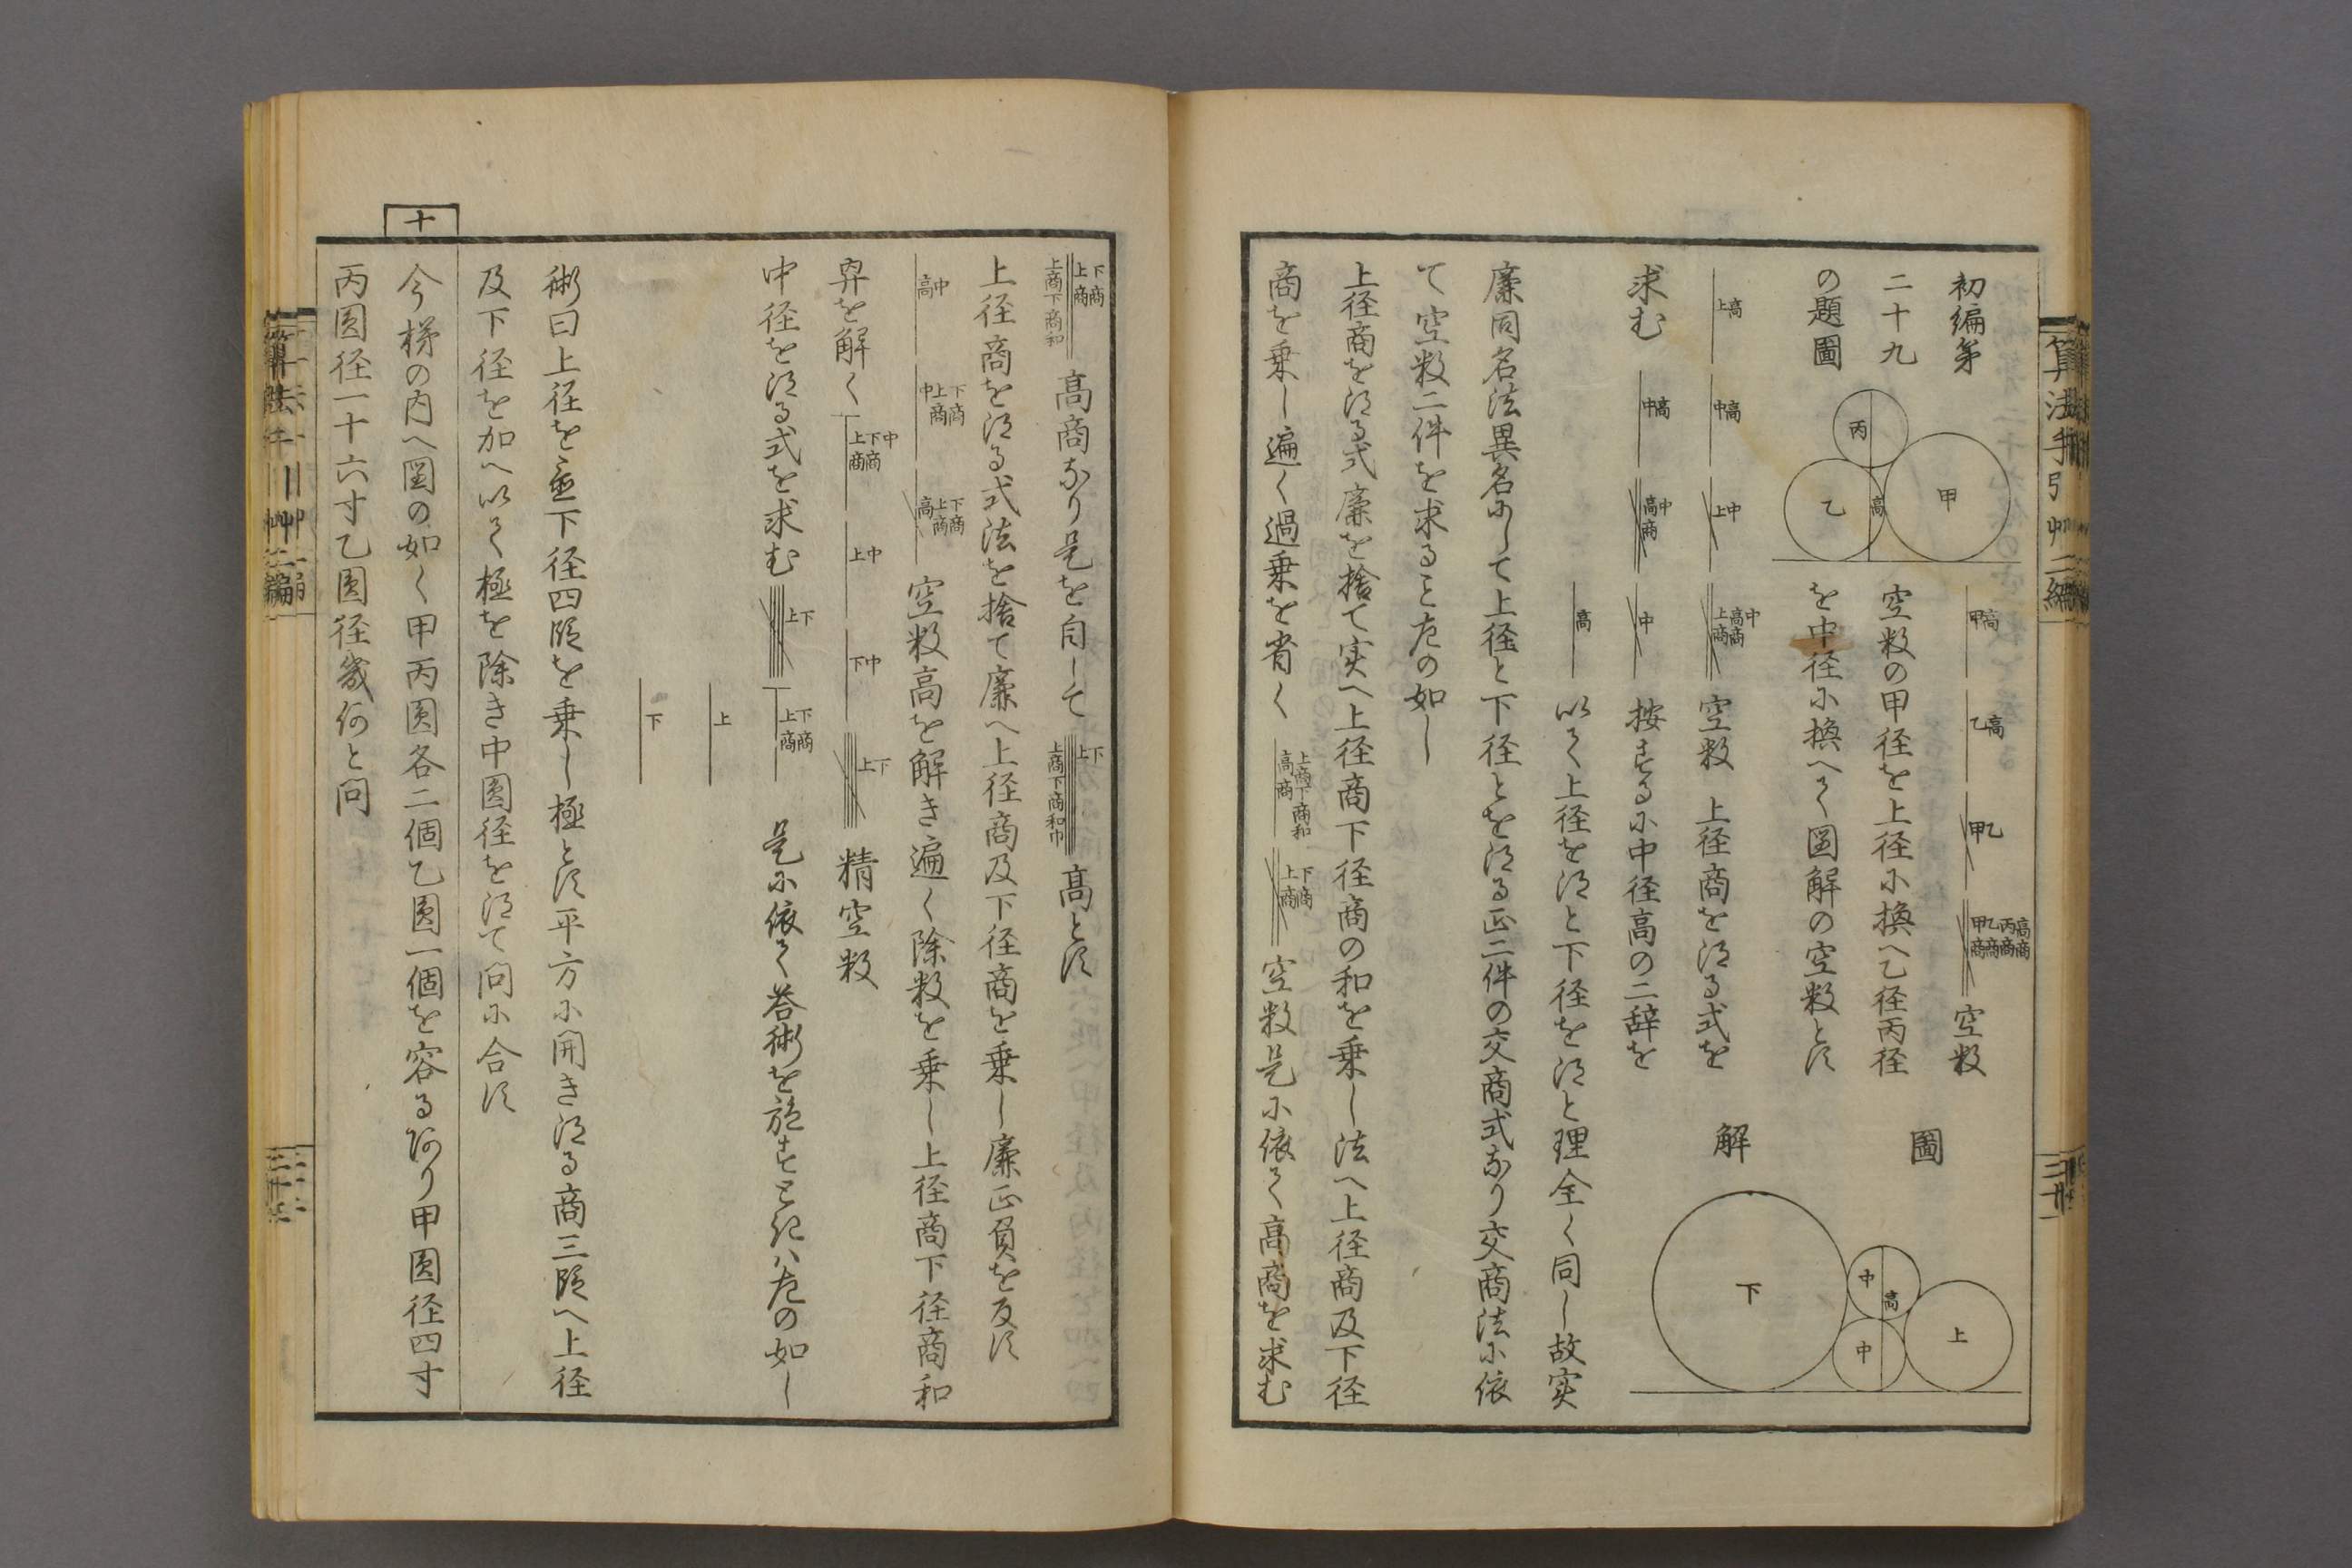 算法手引艸二編
初編第
二十九
の題圖
丙
甲
乙
高
甲高
乙高
甲乙
甲商乙商丙商高商
空数
空数の甲径を上径に換へ乙径丙径
を中径に換へて図解の空数とす
圖
解
下
中
高
中
上
上高
中高
上中
上商高商中
空数 上径商を得る式を
求む
中高
高商中
中
按ずるに中径高の二辞を
高
以て上径を得と下径を得と理全く同し故実
廉同名法異名にして上径と下径とを得る正二件の交商式なり交商法に依
て空数二件を求ること左の如し
上径商を得る式廉を捨て実へ上径商下径商の和を乗し法へ上径商及下径
商を乗し遍く過乗を省く
高商上商下商和
上商下商
空数是に依て高商を求む
上商下商
上商下商和
高商なり是を自して
上下
上商下商和巾
高とす
上径商を得る式法を捨て廉へ上径商及下径商を乗し廉正負を反す
高中
中上商下商
高上商下商
空数高を解き遍く除数を乗し上径商下径商和
冪を解く
上商下商中
上中
下中
上下
精空数
中径を得る式を求む
上下
上商下商
上
下
是に依て答術を施すときハ左の如し
術曰上径を置下径四段を乗し極とす平方に開き得る商三段へ上径
及下径を加へ以て極を除き中円径を得て問に合す
十
今梯の内へ図の如く甲丙円各二個乙円一個を容るあり甲円径四寸
丙円径一十六寸乙円径幾何と問